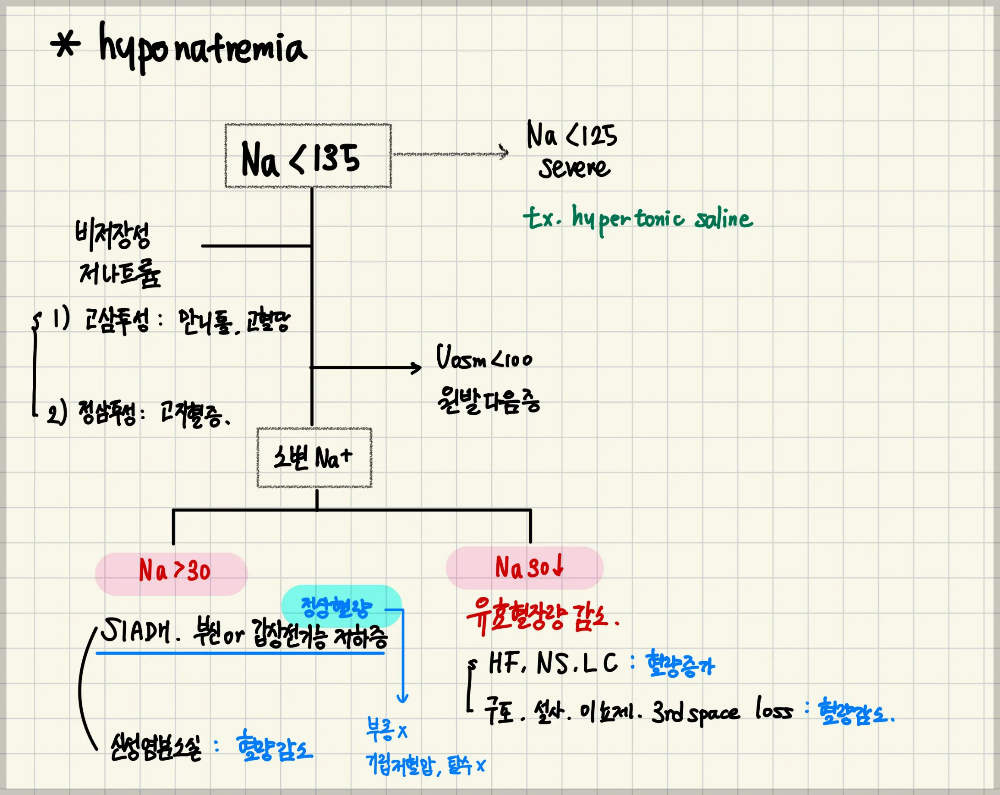 * hyponatremia
Na <135
Na <125
severe
tx. hypertonic saline
비저장성
저나트륨
1) 고삼투성 : 만니톨, 고혈당
2) 정삼투성 : 고지혈증.
Uosm <100
원발다음증
소변 Na+
Na >30
Na 30↓
정상혈량
SIADH. 부신 or 갑상선기능 저하증
부종 x
기립저혈압, 탈수 x
신성염분소실 : 혈량감소
유효혈장량 감소.
HF, NS, LC : 혈량증가
구토. 설사. 이뇨제. 3rd space loss : 혈량감소.